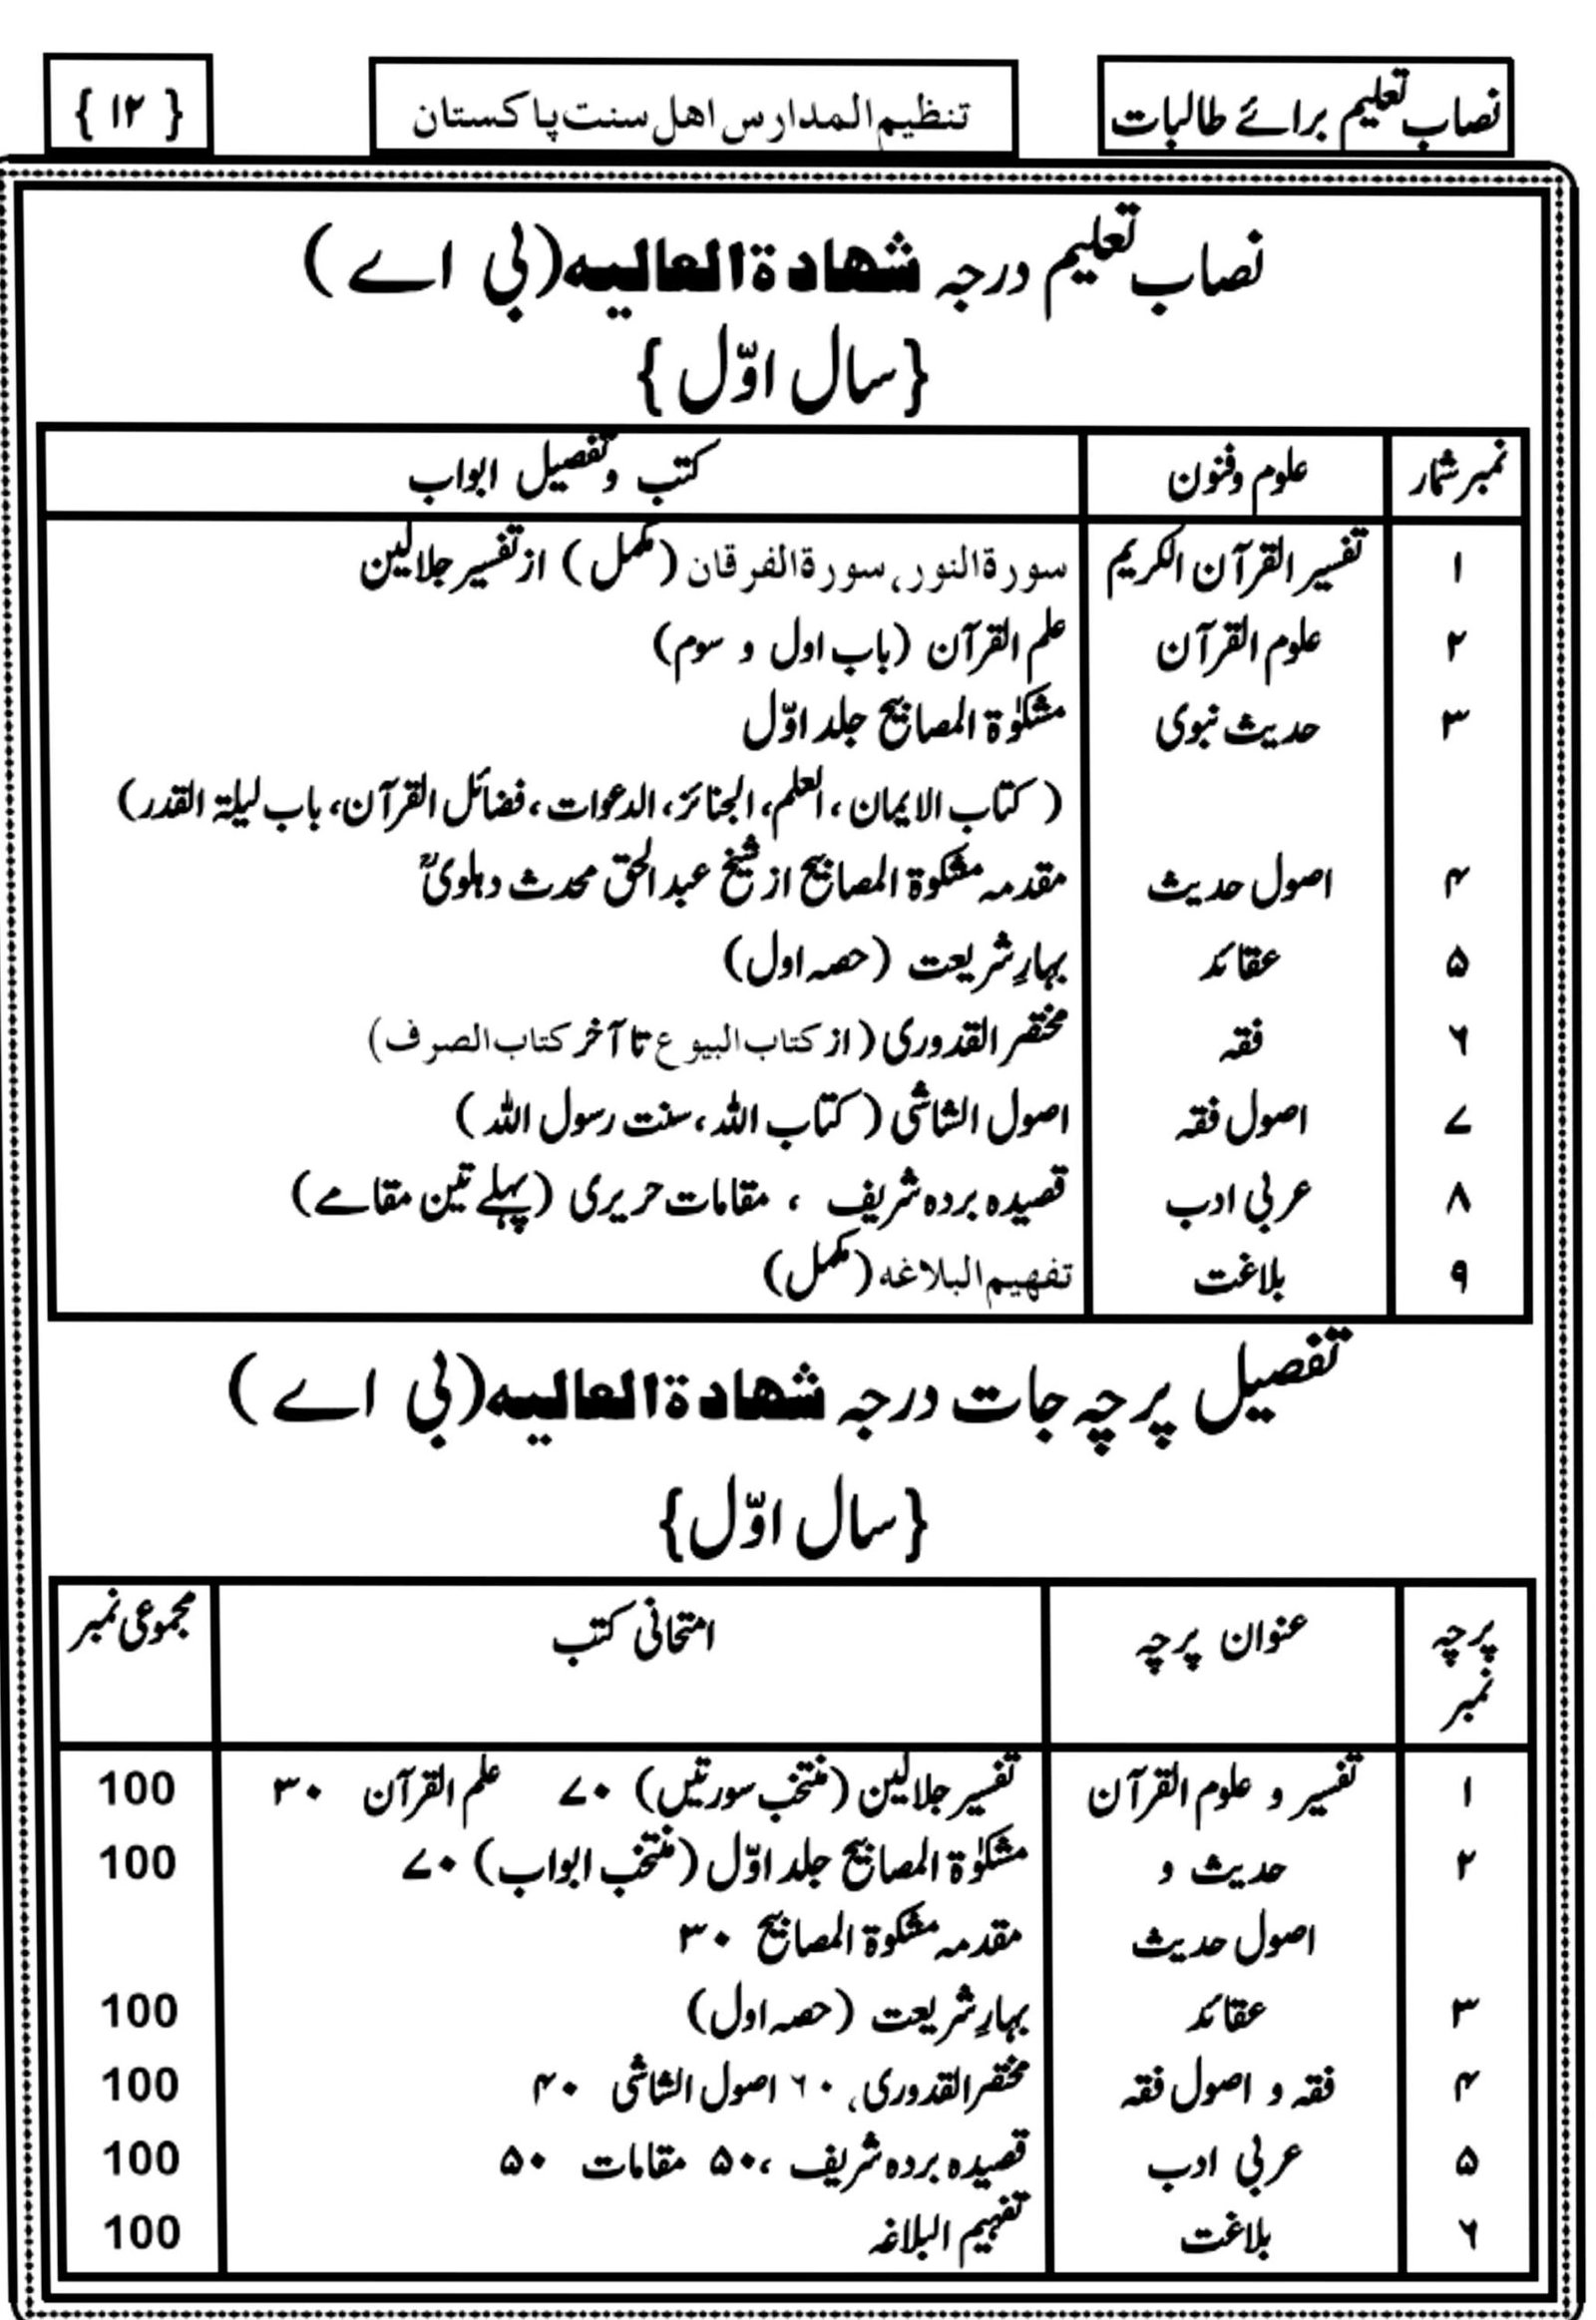 نصاب تعلیم برائے طالبات
تنظیم المدارس اهل سنت پاکستان
{ ۱۲ }
نصاب تعلیم درجہ شهادة العالیه (بی اے)
{سال اوّل}
نمبر شمار علوم وفنون کتب وتفصیل ابواب
۱ تفسیر القرآن الکریم سورة النور، سورة الفرقان (مکمل) از تفسیر جلالین
۲ علوم القرآن علم القرآن (باب اول و سوم)
۳ حدیث نبوی مشکوٰۃ المصابیح جلد اوّل
(کتاب الایمان، العلم، الجنائز، الدعوات، فضائل القرآن، باب لیلۃ القدر)
۴ اصول حدیث مقدمہ مشکوۃ المصابیح از شیخ عبد الحق محدث دہلویؒ
۵ عقائد بہارِ شریعت (حصہ اول)
۶ فقہ مختصر القدوری (از کتاب البیوع تا آخر کتاب الصرف)
۷ اصول فقہ اصول الشاشی (کتاب اللہ، سنت رسول اللہ)
۸ عربی ادب قصیدہ بردہ شریف ، مقامات حریری (پہلے تین مقامے)
۹ بلاغت تفهیم البلاغه (مکمل)
تفصیل پرچہ جات درجہ شهادة العالیه (بی اے)
{سال اوّل}
پرچہ نمبر عنوان پرچہ امتحانی کتب مجموعی نمبر
۱ تفسیر و علوم القرآن تفسیر جلالین (منتخب سورتیں) ۷۰ علم القرآن ۳۰ 100
۲ حدیث و مشکوٰۃ المصابیح جلد اوّل (منتخب ابواب) ۷۰ 100
اصول حدیث مقدمہ مشکوۃ المصابیح ۳۰
۳ عقائد بہارِ شریعت (حصہ اول) 100
۴ فقہ و اصول فقہ مختصر القدوری، ۶۰ اصول الشاشی ۴۰ 100
۵ عربی ادب قصیدہ بردہ شریف ،۵۰ مقامات ۵۰ 100
۶ بلاغت تفہیم البلاغہ 100